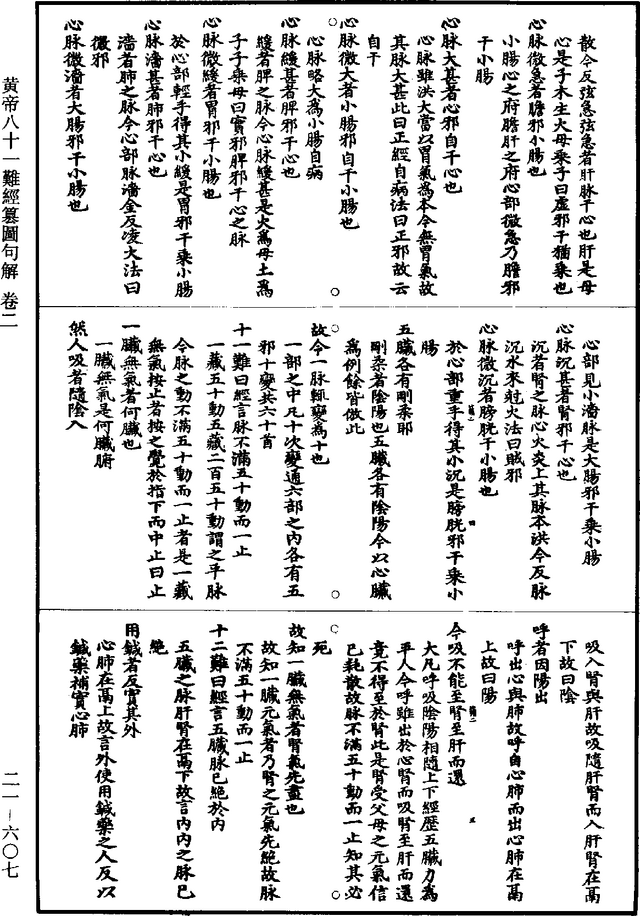 黃帝八十一難經纂圖句解 卷二
二一-六〇七
散今反弦急弦急者肝脉干心也肝是母
心是子木生火母乘子曰虛邪干猶乘也
心脉微急者膽邪干小腸也
小腸心之府膽肝之府心部微急乃膽邪
干小腸
心脉大甚者心邪自干心也
心脉雖洪大當以胃氣為本今無胃氣故
其脉大甚此曰正經自病法曰正邪故云
自干
心脉微大者小腸邪自干小腸也
心脉略大為小腸自病
心脉緩甚者脾邪干心也
緩者脾之脉今心脉緩甚是火為母土為
子子乘母曰實邪脾邪干心之脉
心脉微緩者胃邪干小腸也
於心部輕手得其小緩是胃邪干乘小腸
心脉濇甚者肺邪干心也
濇者肺之脉今心部脉濇金反凌火法曰
微邪
心脉微濇者大腸邪干小腸也
心部見小濇脉是大腸邪干乘小腸
心脉沉甚者腎邪干心也
沉者腎之脉心火炎上其脉本洪今反脉
沉水來尅火法曰賊邪
心脉微沉者膀胱干小腸也
於心部重手得其小沉是膀胱邪干乘小
腸
五臟各有剛柔邪
剛柔者陰陽也五臟各有陰陽今以心臟
為例餘皆倣此
故今一脉輒變為十也
一部之中凡十次變通六部之內各有五
邪十變共六十首
十一難曰經言脉不滿五十動而一止
一藏五十動五藏二百五十動謂之平脉
今脉之動不滿五十動而一止者是一藏
無氣按止者按之覺於指下而中止曰止
一臟無氣者何臟也
一臟無氣是何臟腑
然人吸者隨陰入
吸入腎與肝故吸隨肝腎而入肝腎在鬲
下故曰陰
呼者因陽出
呼出心與肺故呼自心肺而出心肺在鬲
上故曰陽
今吸不能至腎至肝而還
大凡呼吸陰陽相隨上下經歷五臟乃為
平人今呼雖出於心腎而吸腎至肝而還
竟不得至於腎此是腎受父母之元氣信
已耗散故脉不滿五十動而一止知其必
死
故知一臟無氣者腎氣先盡也
故知一臟元氣者乃腎之元氣先絕故脉
不滿五十動而一止
十二難曰經言五臟脉已絕於內
五臟之脉肝腎在鬲下故言內內之脉已
絕
用鍼者反實其外
心肺在鬲上故言外使用鍼藥之人反以
鍼藥補實心肺